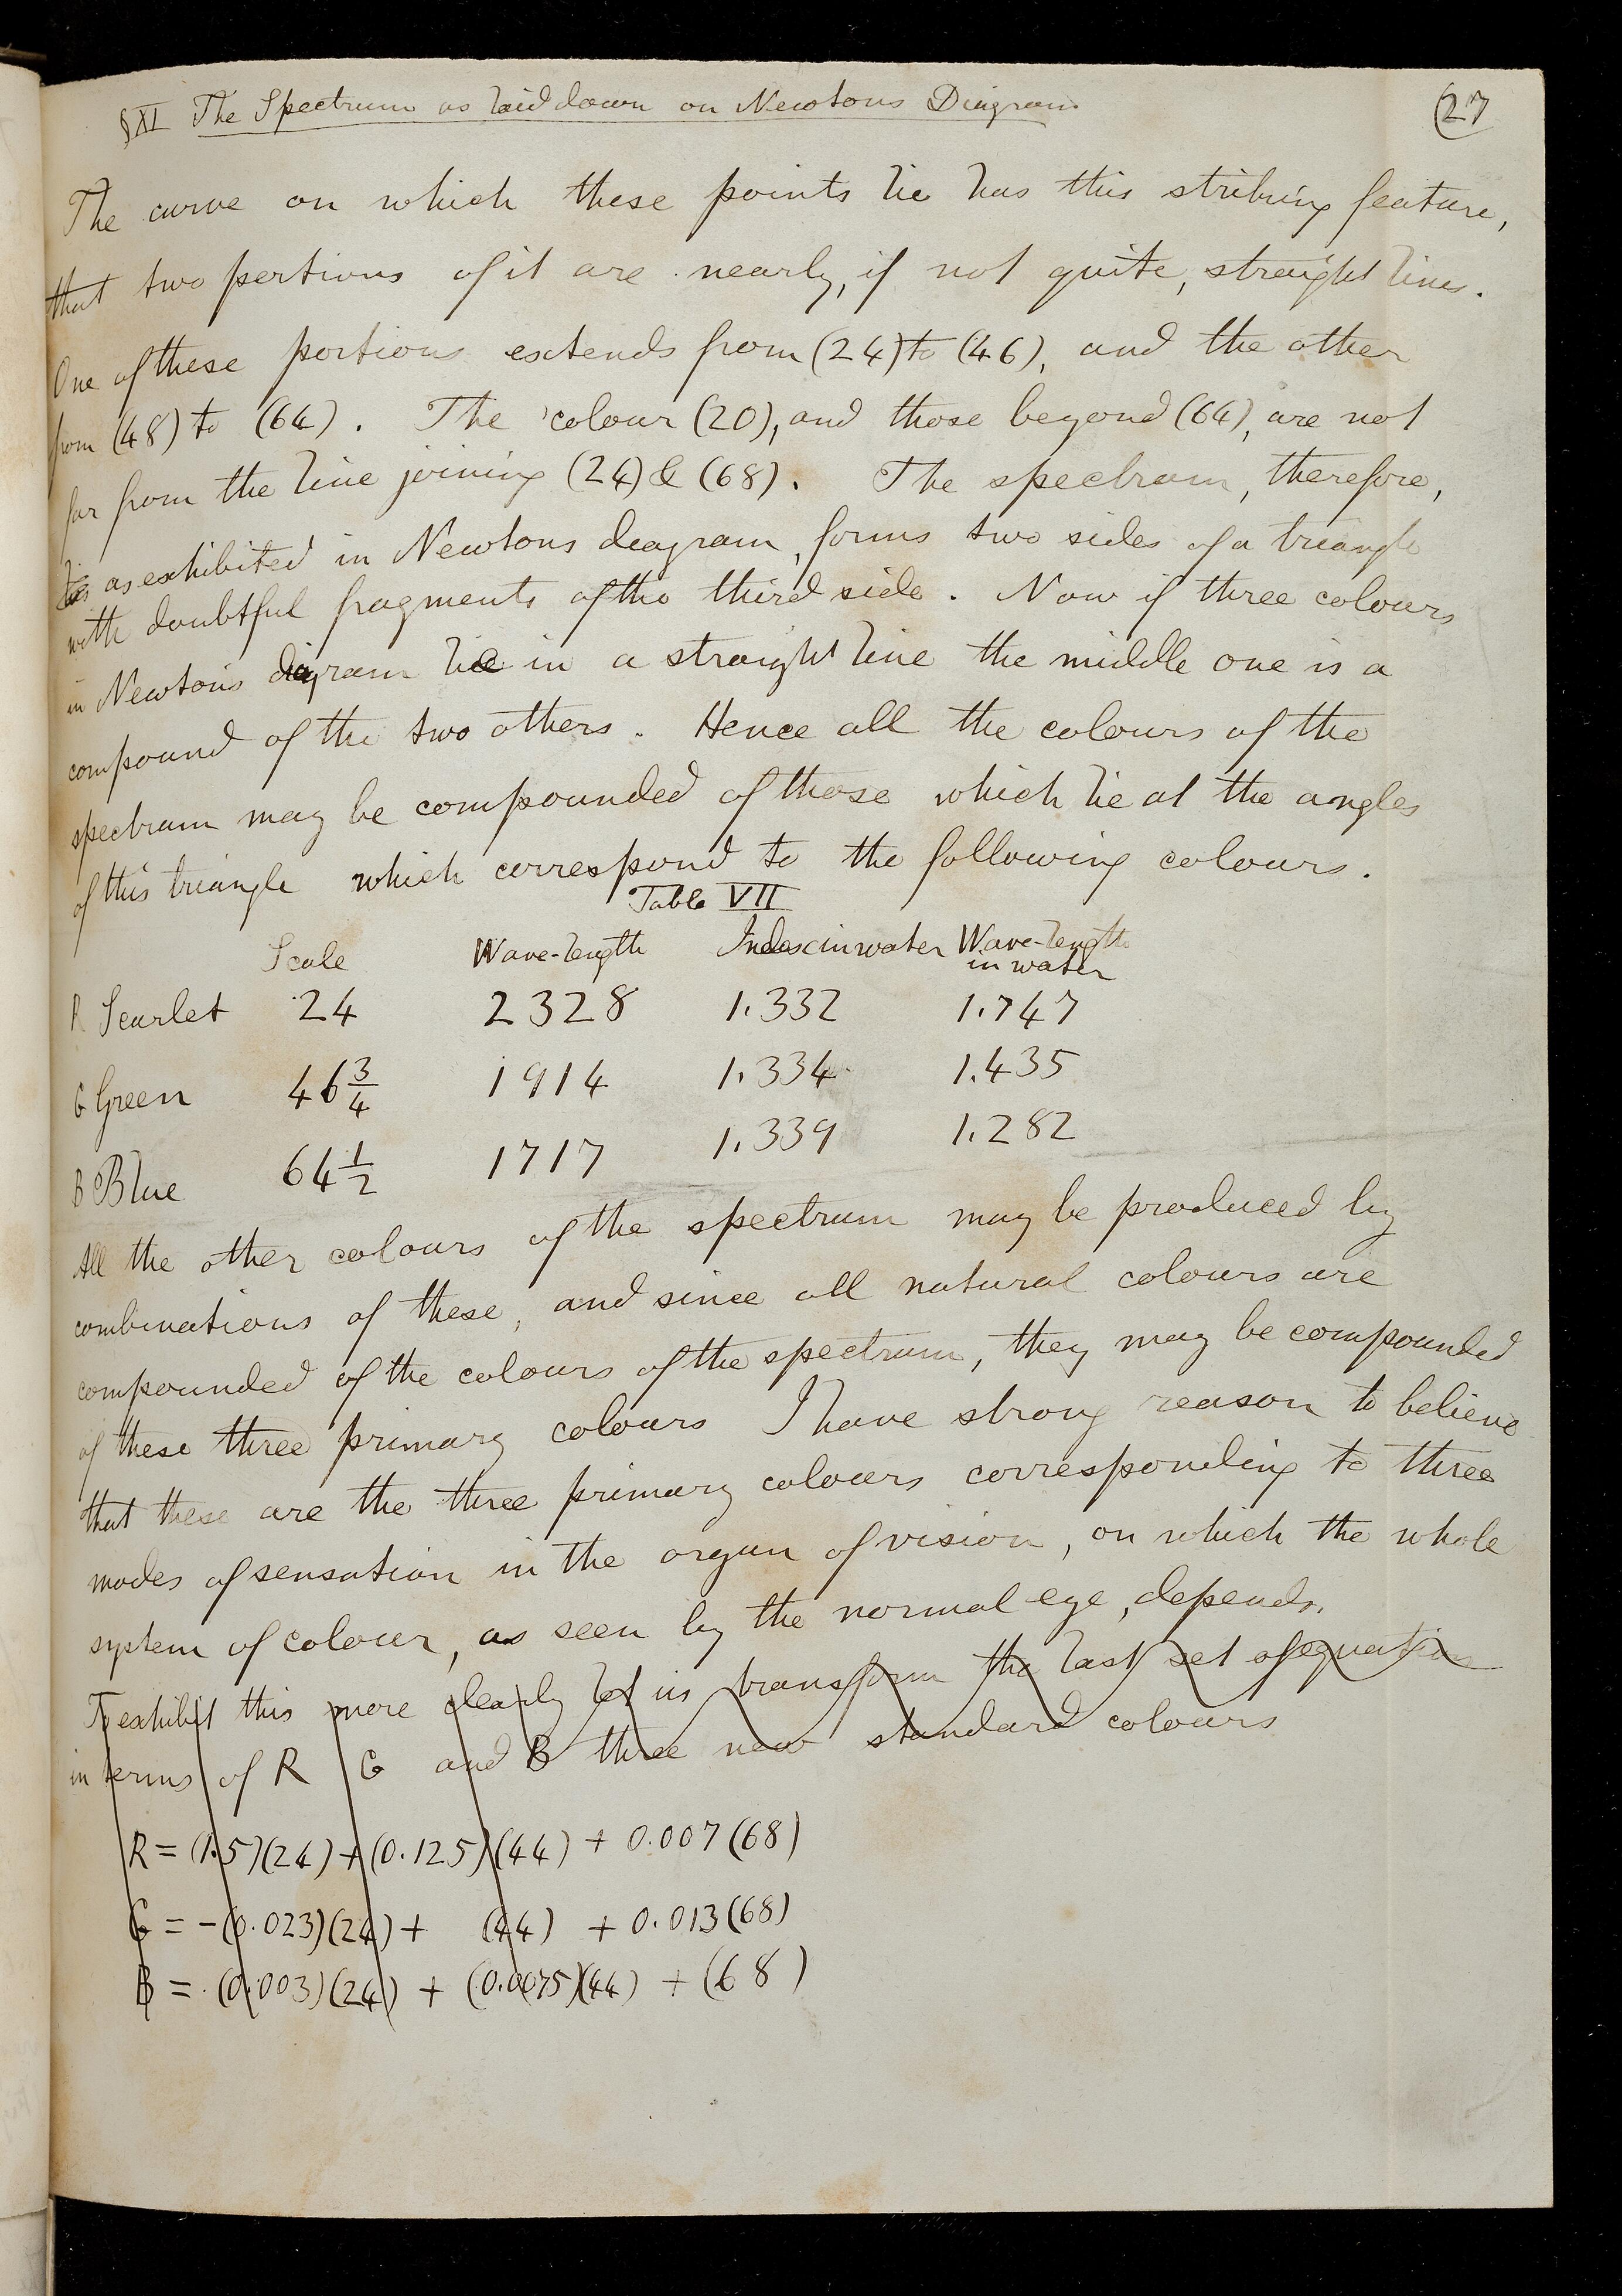 §XI The Spectrum as laid down on Newtons Diagram
(27
The curve on which these points lie has this striking feature,
that two portions of it are nearly, if not quite, straight lines.
One of these portions extends from (24) to (46), and the other
from (48) to (64). The colour (20), and those beyond (64), are not
far from the line joining (24) & (68). The spectrum, therefore,
as exhibited in Newtons diagram, forms two sides of a triangle
with doubtful fragments of the third side. Now if three colours
in Newtons diagram lie in a straight line the middle one is a
compound of the two others. Hence all the colours of the
spectrum may be compounded of those which lie at the angles
of this triangle which correspond to the following colours.
Table VII
Scale Wave-length Index in water Wave-length in water
R Scarlet 24 2328 1.332 1.747
G Green 46 3/4 1914 1.334 1.435
B Blue 64 1/2 1717 1.339 1.282
All the other colours of the spectrum may be produced by
combinations of these, and since all natural colours are
compounded of the colours of the spectrum, they may be compounded
of these three primary colours I have strong reason to believe
that these are the three primary colours corresponding to three
modes of sensation in the organ of vision, on which the whole
system of colour, as seen by the normal eye, depends.
To exhibit this more clearly let us transform the last set of equations
in terms of R G and B three new standard colours
R = (1.5)(24) + (0.125)(44) + 0.007(68)
G = -(0.023)(24) + (44) + 0.013(68)
B = (0.003)(24) + (0.0075)(44) + (68)